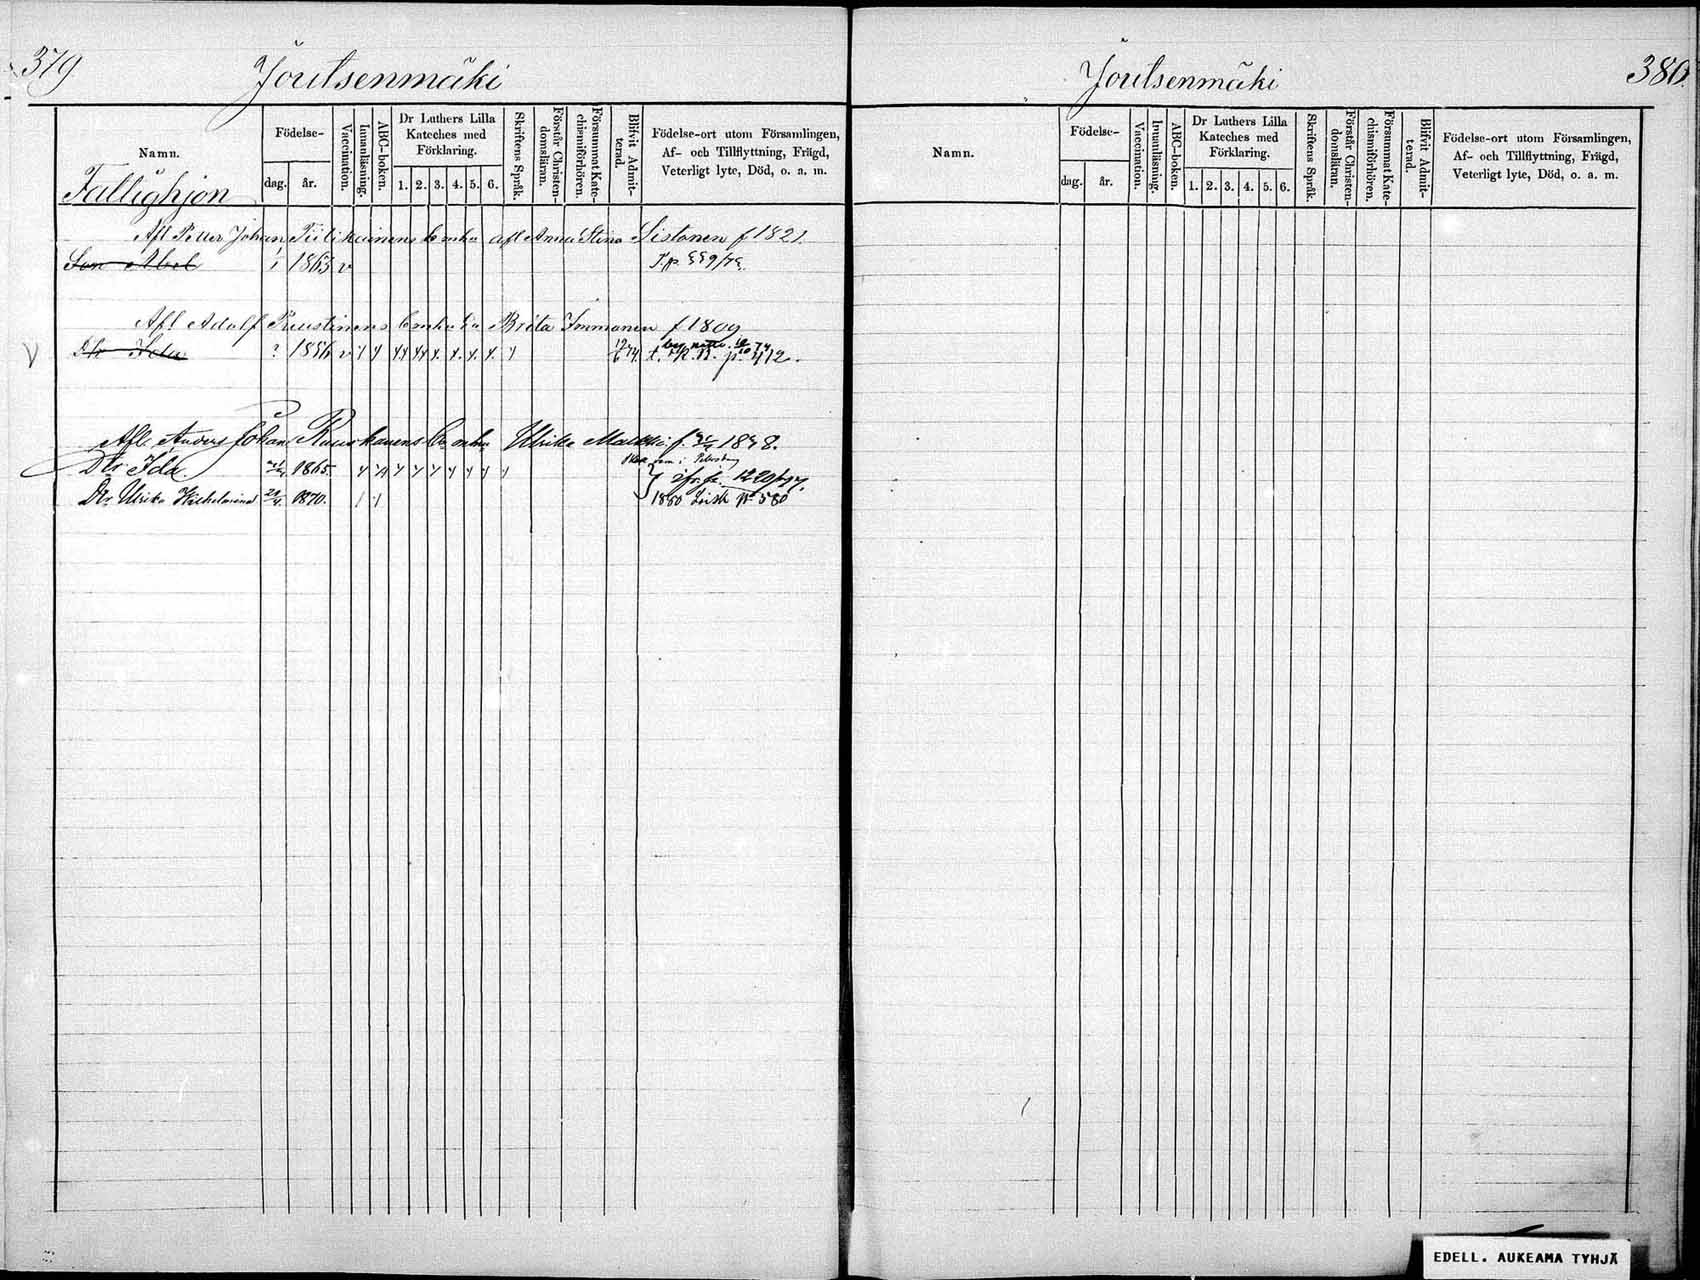 379
Joutsenmäki
Namn.
Födelse-
dag.
år.
Vaccination.
Innanläsning.
ABC-boken.
Dr Luthers Lilla
Kateches med
Förklaring.
1. 2. 3. 4. 5. 6.
Skriftens Språk.
Förstår Christen-
domsläran.
Försummat Kate-
chismiförhören.
Blifvit Admit-
terad.
Födelse-ort utom Församlingen,
Af- och Tillflyttning, Frägd,
Veterligt lyte, Död, o. a. m.
Fattighjon
Afl Petter Johan Piilikainens Enka afl Anna Stina f 1821.
Son Abel 1863 v
Afl Adolf Puustinens Enka Brita Immonen f 1809
Dtr Ida ? 1856 v
Afl. Anders Johan Ruuskanens Enka Ulrika f. 1828.
Dtr Ida 1865. i Petersburg
Dtr Ulrika Wilhelmina 1870. 1880 p. 580
Joutsenmäki
380.
Namn.
Födelse-
dag.
år.
Vaccination.
Innanläsning.
ABC-boken.
Dr Luthers Lilla
Kateches med
Förklaring.
1. 2. 3. 4. 5. 6.
Skriftens Språk.
Förstår Christen-
domsläran.
Försummat Kate-
chismiförhören.
Blifvit Admit-
terad.
Födelse-ort utom Församlingen,
Af- och Tillflyttning, Frägd,
Veterligt lyte, Död, o. a. m.
EDELL. AUKEAMA TYHJÄ